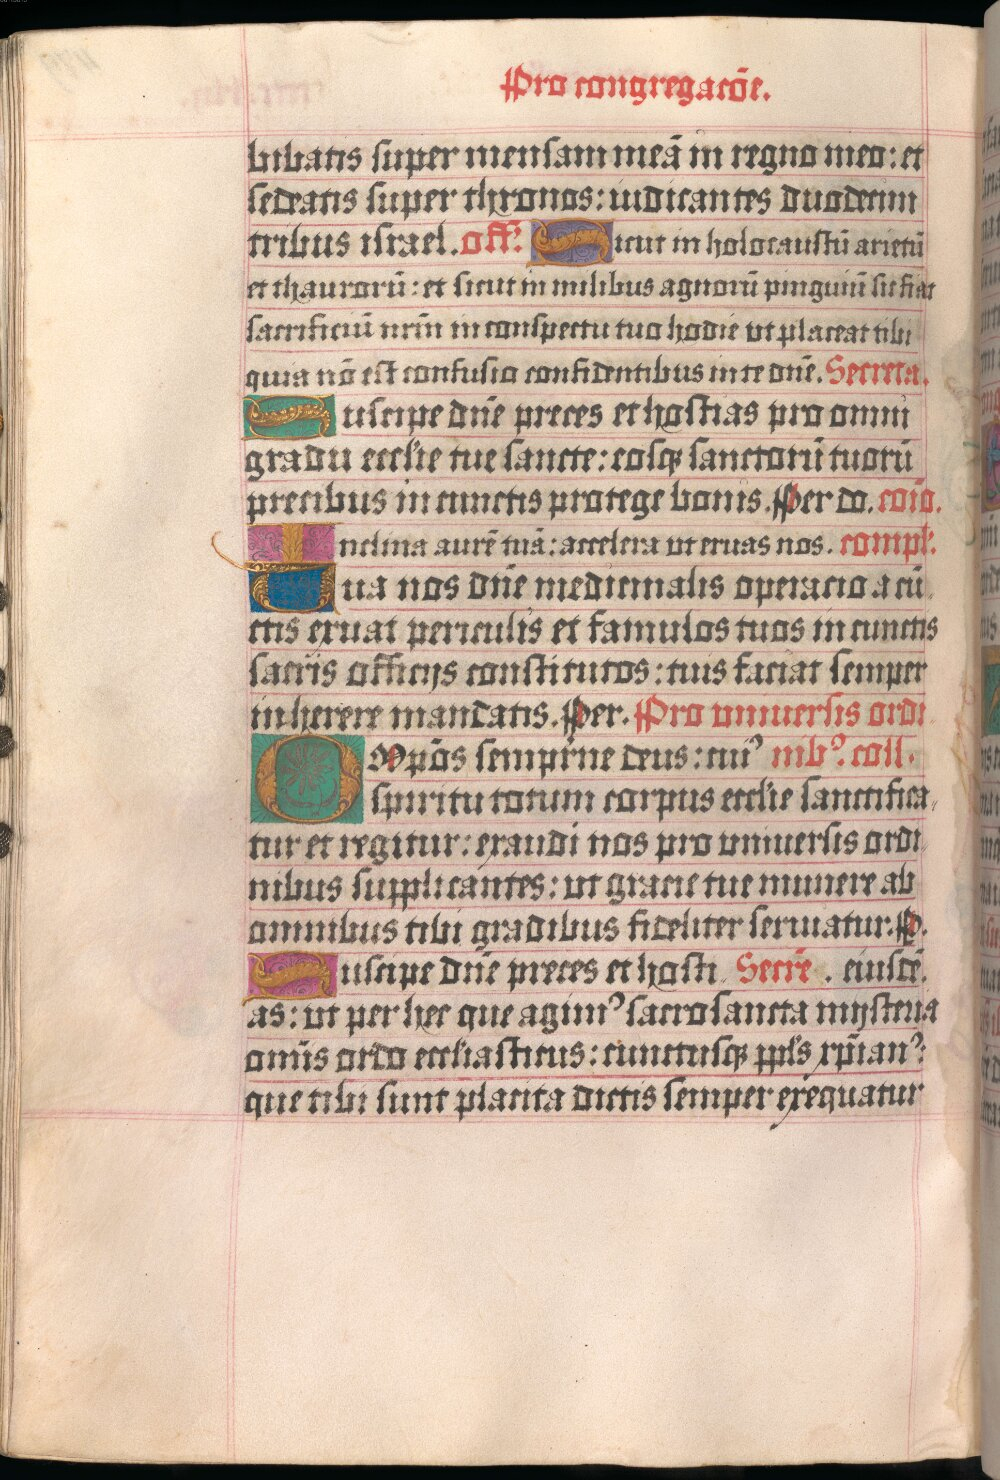 Pro congregacõe.
bibatis super mensam meã in regno meo: et
sedeatis super thronos: iudicantes duodecim
tribus israel. off. Sicut in holocaustũ arietũ
et thaurorũ: et sicut in milibus agnorũ pinguiũ sit fiat
sacrificiũ nrm̃ in conspectu tuo hodie vt placeat tibi
quia nõ est confusio confidentibus in te dñe. Secreta.
Suscipe dñe preces et hostias pro omni
gradu eccl'ie tue sancte: eosqꝫ sanctorũ tuorũ
precibus in cunctis protege bonis. Per do. coiõ.
Inclina aurẽ tuã: accelera ut eruas nos. compl'.
Tua nos dñe medicinalis operacio a cũ
ctis eruat periculis et famulos tuos in cunctis
sacris officijs constitutos: tuis faciat semper
inherere mandatis. Per. Pro vniuersis ordi
OMp̃s sempit̃ne deus: cuiꝰ nibꝰ. coll.
spiritu totum corpus eccl'ie sanctifica
tur et regitur: exaudi nos pro vniuersis ordi
nibus supplicantes: ut gracie tue munere ab
omnibus tibi gradibus fideliter seruiatur. P.
Suscipe dñe preces et hosti Secrẽ. eiusdẽ.
as: ut per hec que agimꝰ sacrosancta mijsteria
omĩs ordo eccl'iasticus: cunctusqꝫ ppl's xp̃ianꝰ:
que tibi sunt placita dictis semper exequatur